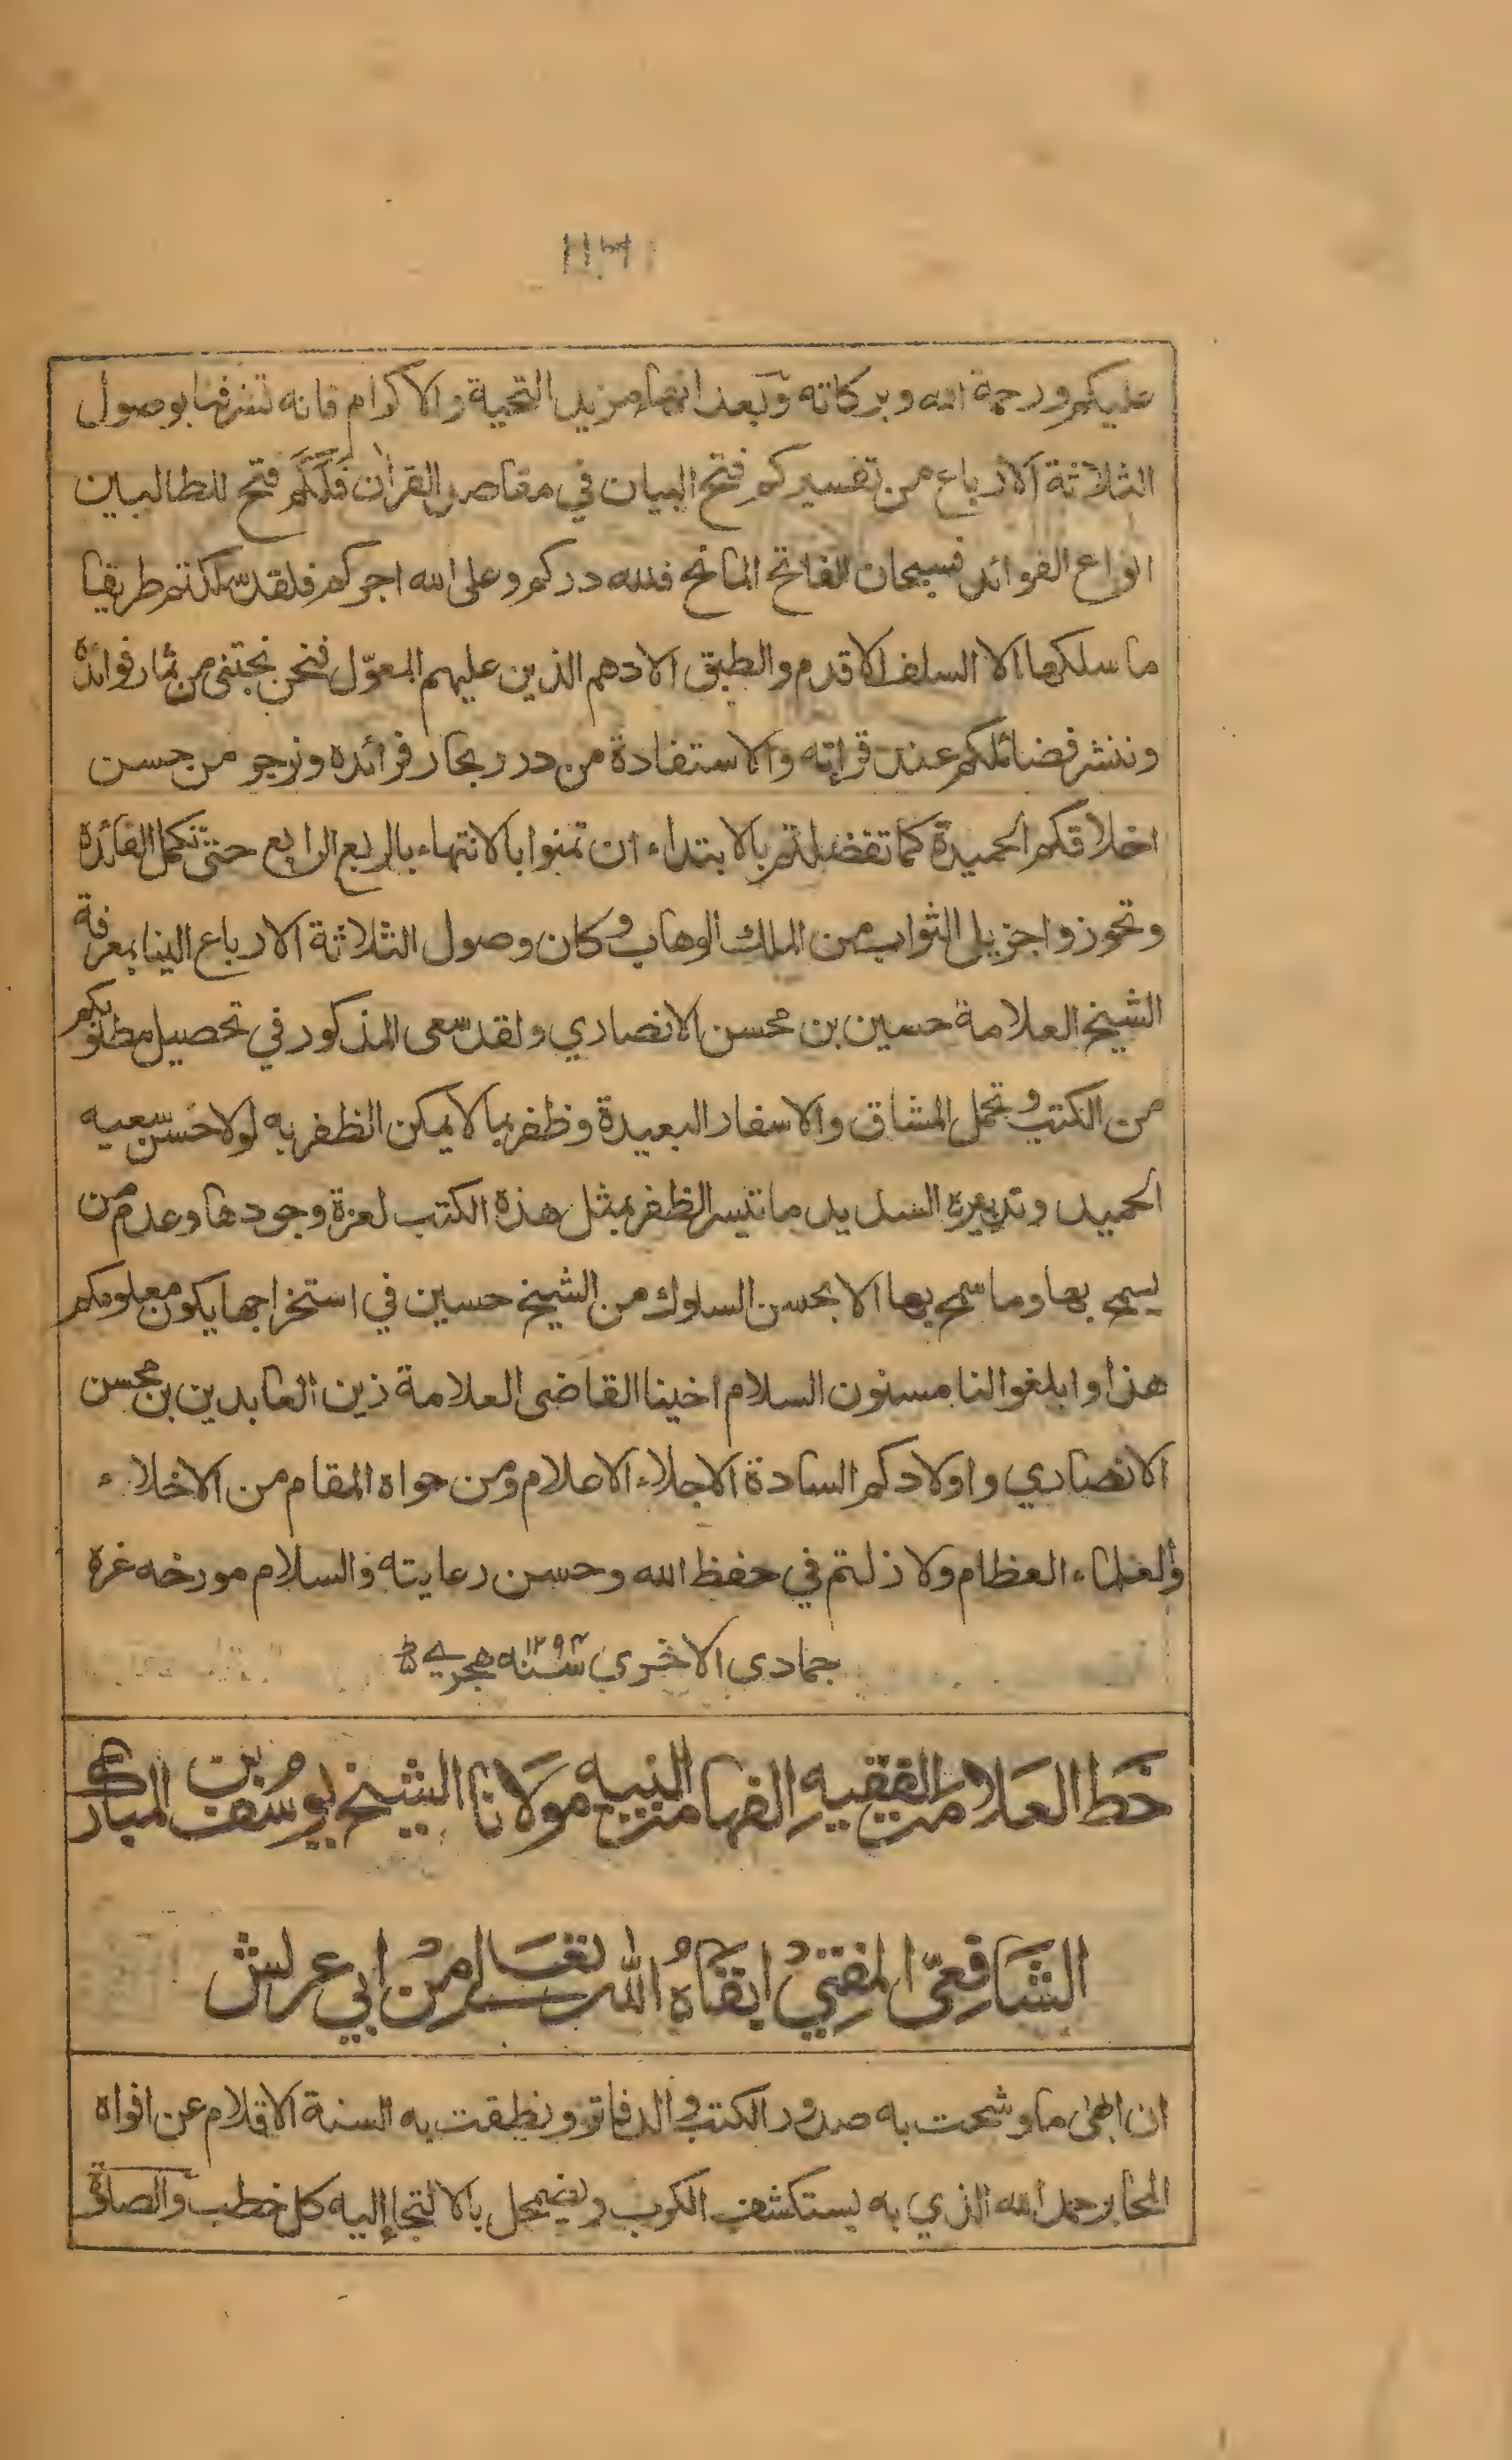 عليكم ورحمة الله وبركاته وبعد انهاء مزيد التحية والاكرام فانه تشرفنا بوصول
الثلاثة الارباع من تفسيركم فتح البيان في مقاصد القرآن فلكم فتح للطالبين
انواع الفوائد فسبحان الفاتح المانح فلله دركم وعلى الله اجركم فلقد سلكتم طريقا
ما سلكها الا السلف الاقدم والطبق الادهم الذين عليهم المعوّل فنحن نجتنى من ثمار فوائده
وننشر فضائلكم عند قراته والاستفادة من درر بحار فرائده ونرجو من حسن
اخلاقكم الحميدة كما تفضلتم بالابتداء ان تمنوا بالانتهاء بالربع الرابع حتى تكمل الفائدة
وتحوزوا جزيل الثواب من الملك الوهاب وكان وصول الثلاثة الارباع الينا بمعرفة
الشيخ العلامة حسين بن محسن الانصاري ولقد سعى المذكور في تحصيل مطلوبكم
من الكتب وتحمل المشاق والاسفار البعيدة وظفر بما لا يمكن الظفر به لولا حسن سعيه
الحميد وتدبيره السديد ما تيسر الظفر بمثل هذه الكتب لعزة وجودها وعدم من
يسمح بها وما سمح بها الا بحسن السلوك من الشيخ حسين في استخراجها يكون معلومكم
هذا وابلغوا لنا مسنون السلام اخينا القاضى العلامة زين العابدين بن محسن
الانصاري واولادكم السادة الاجلاء الاعلام ومن حواه المقام من الاخلاء
والعلماء العظام ولا زلتم في حفظ الله وحسن رعايته والسلام مورخه غرة
جمادى الاخرى سنه ١٢٩٣ هجريه
خط العلامة الفقيه الفهامة النبيه مولانا الشيخ يوسف بن المبارك
الشافعيّ المفتي ابقاه الله تعالى من ابي عريش
ان ابهى ما وشحت به صدور الكتب والدفاتر ونطقت به السنة الاقلام عن افواه
المحابر حمد الله الذي به يستكشف الكرب ويضمحل بالالتجا اليه كل خطب والصلوة